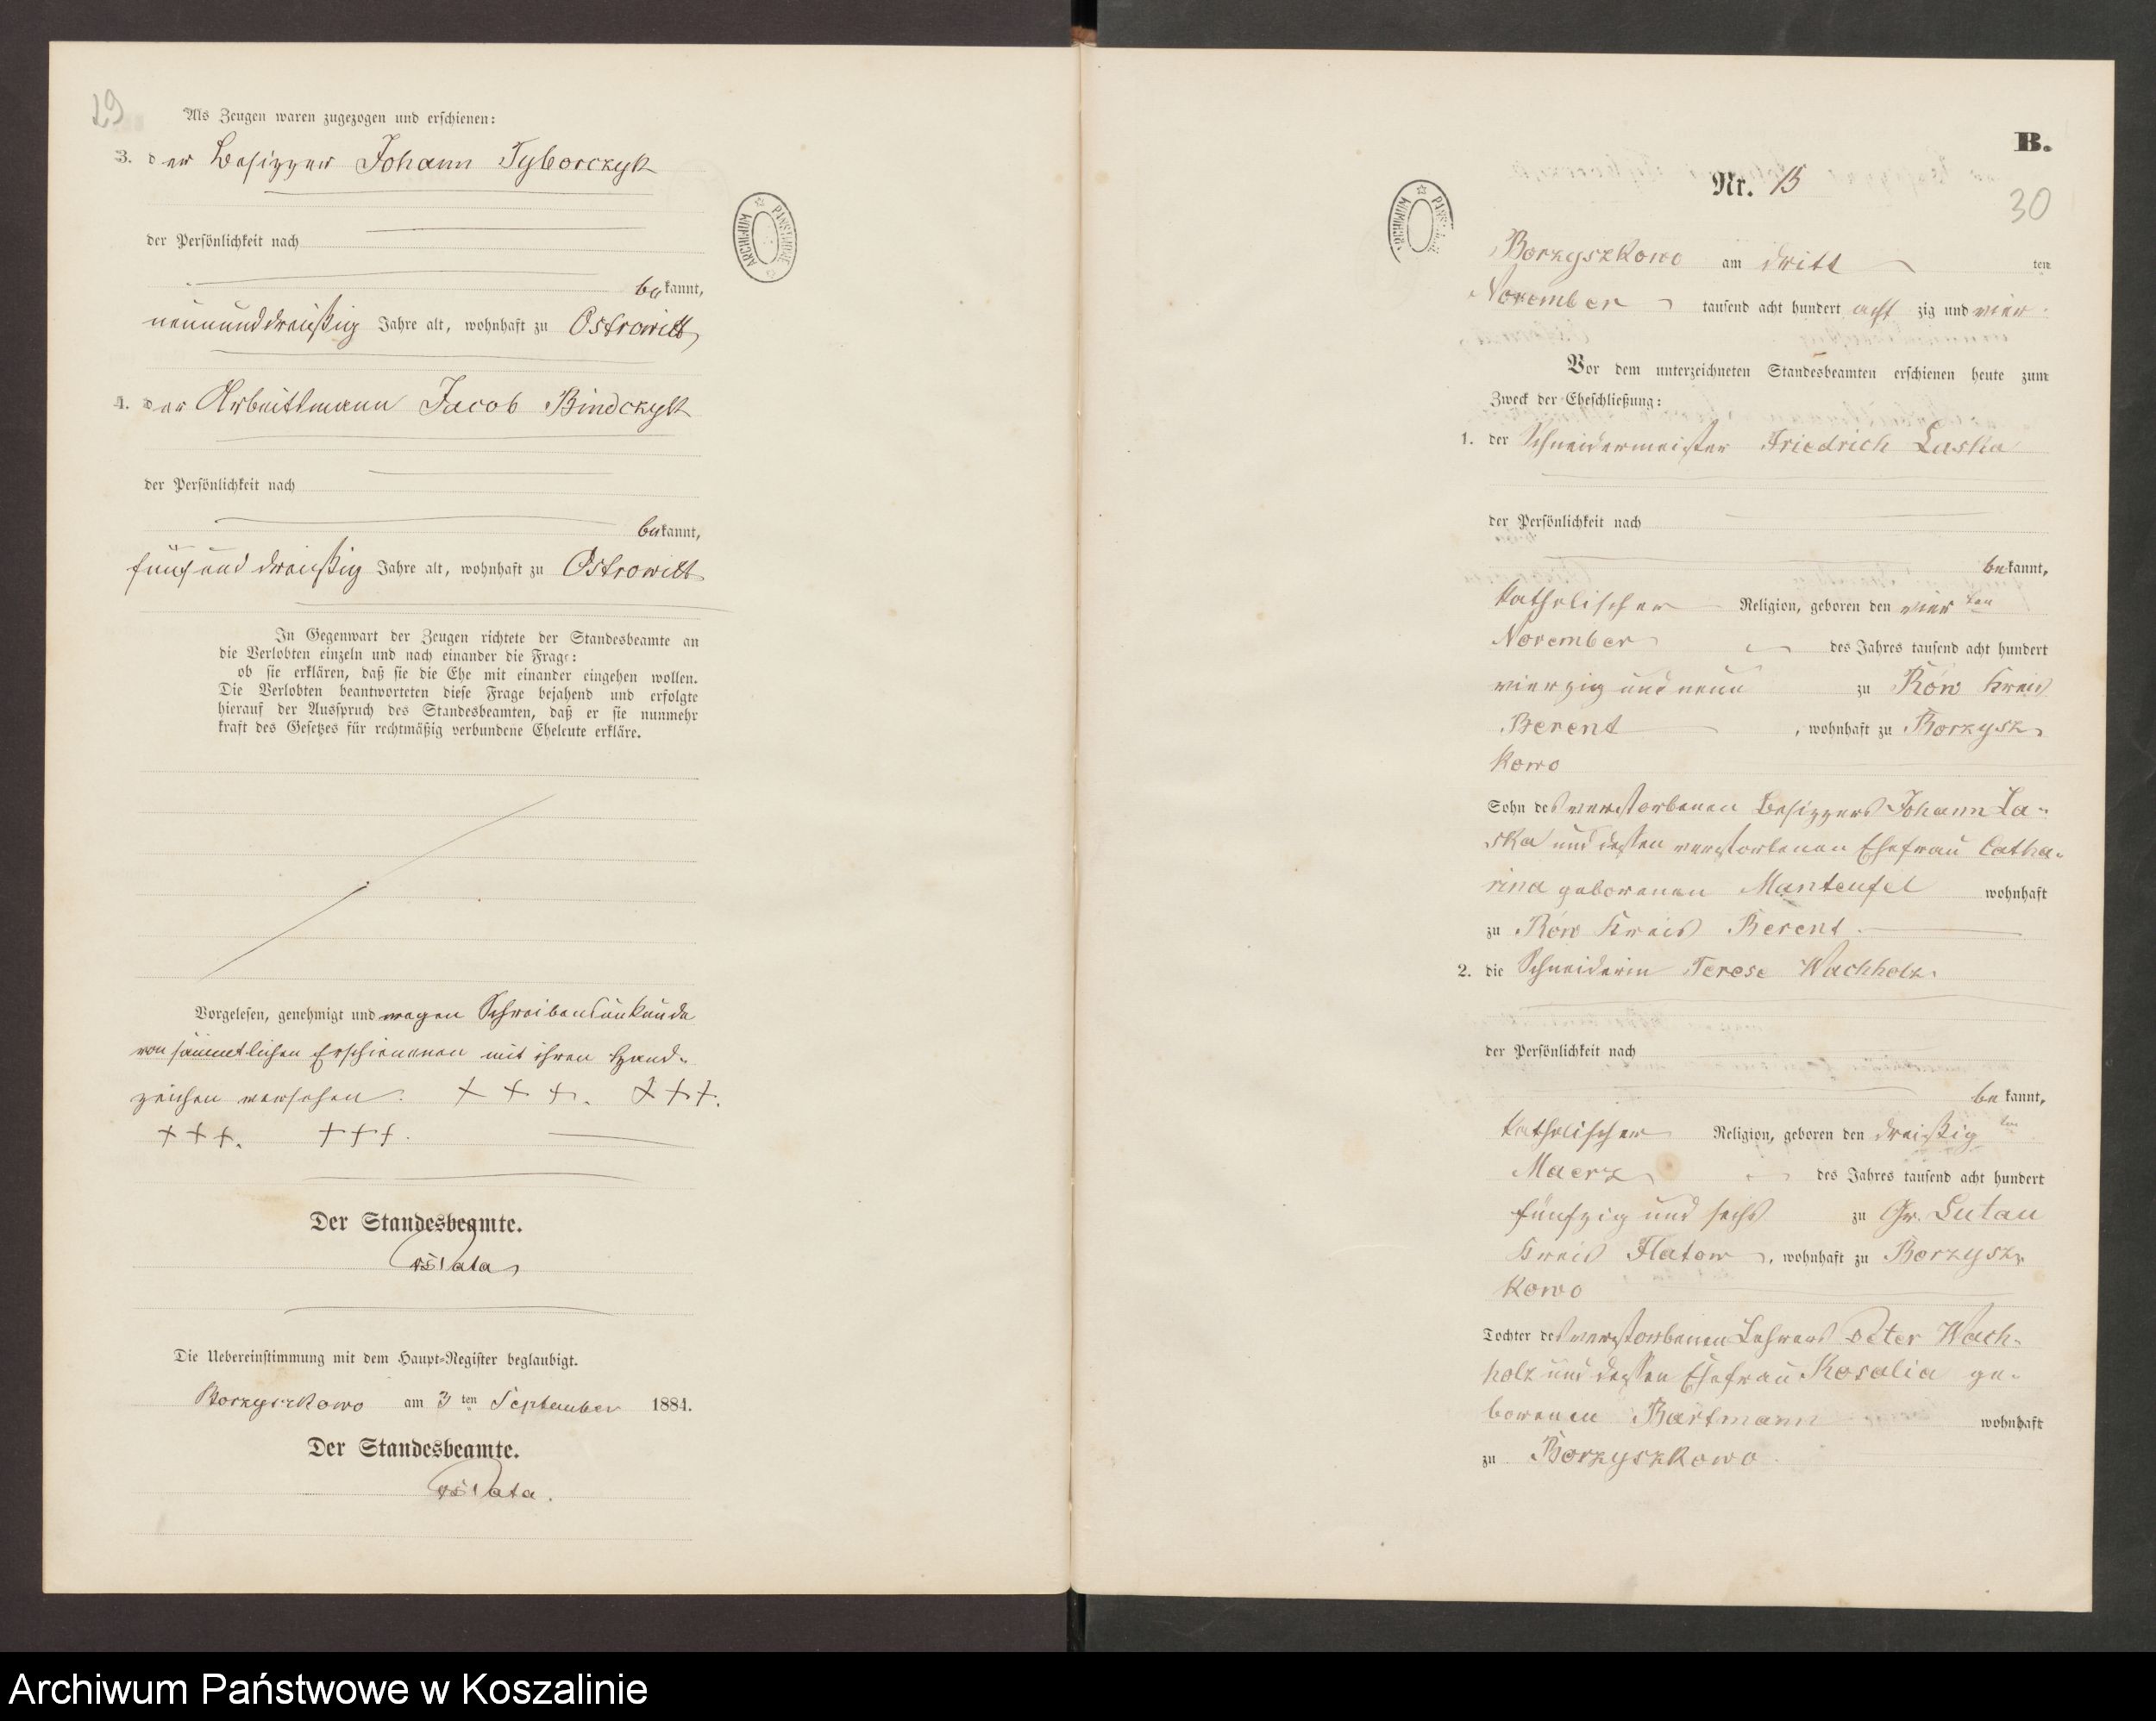 29
Als Zeugen waren zugezogen und erschienen:
3. der Besitzer Johann Tyborczyk
der Persönlichkeit nach
bekannt,
neununddreißig Jahre alt, wohnhaft zu Ostrowitt
4. der Arbeitsmann Jacob Bindczyk
der Persönlichkeit nach
bekannt,
fünf und dreißig Jahre alt, wohnhaft zu Ostrowitt
In Gegenwart der Zeugen richtete der Standesbeamte an
die Verlobten einzeln und nach einander die Frage:
ob sie erklären, daß sie die Ehe mit einander eingehen wollen.
Die Verlobten beantworteten diese Frage bejahend und erfolgte
hierauf der Ausspruch des Standesbeamten, daß er sie nunmehr
kraft des Gesetzes für rechtmäßig verbundene Eheleute erkläre.
Vorgelesen, genehmigt und wegen Schreibensunkunde
von sämmtlichen Erschienenen mit ihren Hand-
zeichen versehen. + + +. + + +.
+ + +. + + +.
Der Standesbeamte.
Die Uebereinstimmung mit dem Haupt-Register beglaubigt.
Borzyszkowo am 3 ten September 1884.
Der Standesbeamte.
ARCHIWUM PAŃSTWOWE
B.
Nr. 13
30
Borzyszkowo am dritt ten
November tausend acht hundert acht zig und vier
Vor dem unterzeichneten Standesbeamten erschienen heute zum
Zweck der Eheschließung:
1. der Schneidermeister Friedrich Laska
der Persönlichkeit nach
bekannt,
katholischer Religion, geboren den vier ten
November des Jahres tausend acht hundert
vierzig und neun zu Rów Kreis
Berent, wohnhaft zu Borzysz-
kowo
Sohn des verstorbenen Besitzers Johann La-
ska und dessen verstorbenen Ehefrau Catha-
rina geborenen Manteufel wohnhaft
zu Rów Kreis Berent.
2. die Schneiderin Terese Wachholz.
der Persönlichkeit nach
bekannt,
katholischer Religion, geboren den dreißig ten
Maerz des Jahres tausend acht hundert
fünfzig und sechs zu Gr. Lutau
Kreis Flatow, wohnhaft zu Borzysz-
kowo
Tochter des verstorbenen Lehrers Peter Wach-
holz und dessen Ehefrau Rosalia ge-
borenen Bartmann wohnhaft
zu Borzyszkowo.
Archiwum Państwowe w Koszalinie